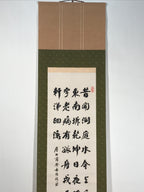 昔聞洞庭水今上
東南坼乾坤日夜
字老病有孤舟戎
軒涕泗流